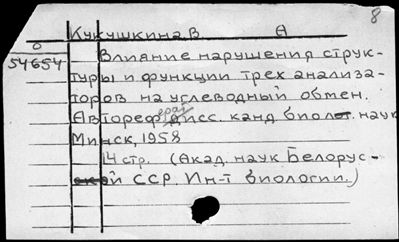 8
Кукушкина, В. А
О
54654 Влияние нарушения струк-
туры и функции трех анализа-
торов на углеводный обмен.
Автореф. дисс. канд биол. наук
Минск, 1958
14 стр. (Акад. наук Белорус-
ской ССР. Ин-т биологии.)